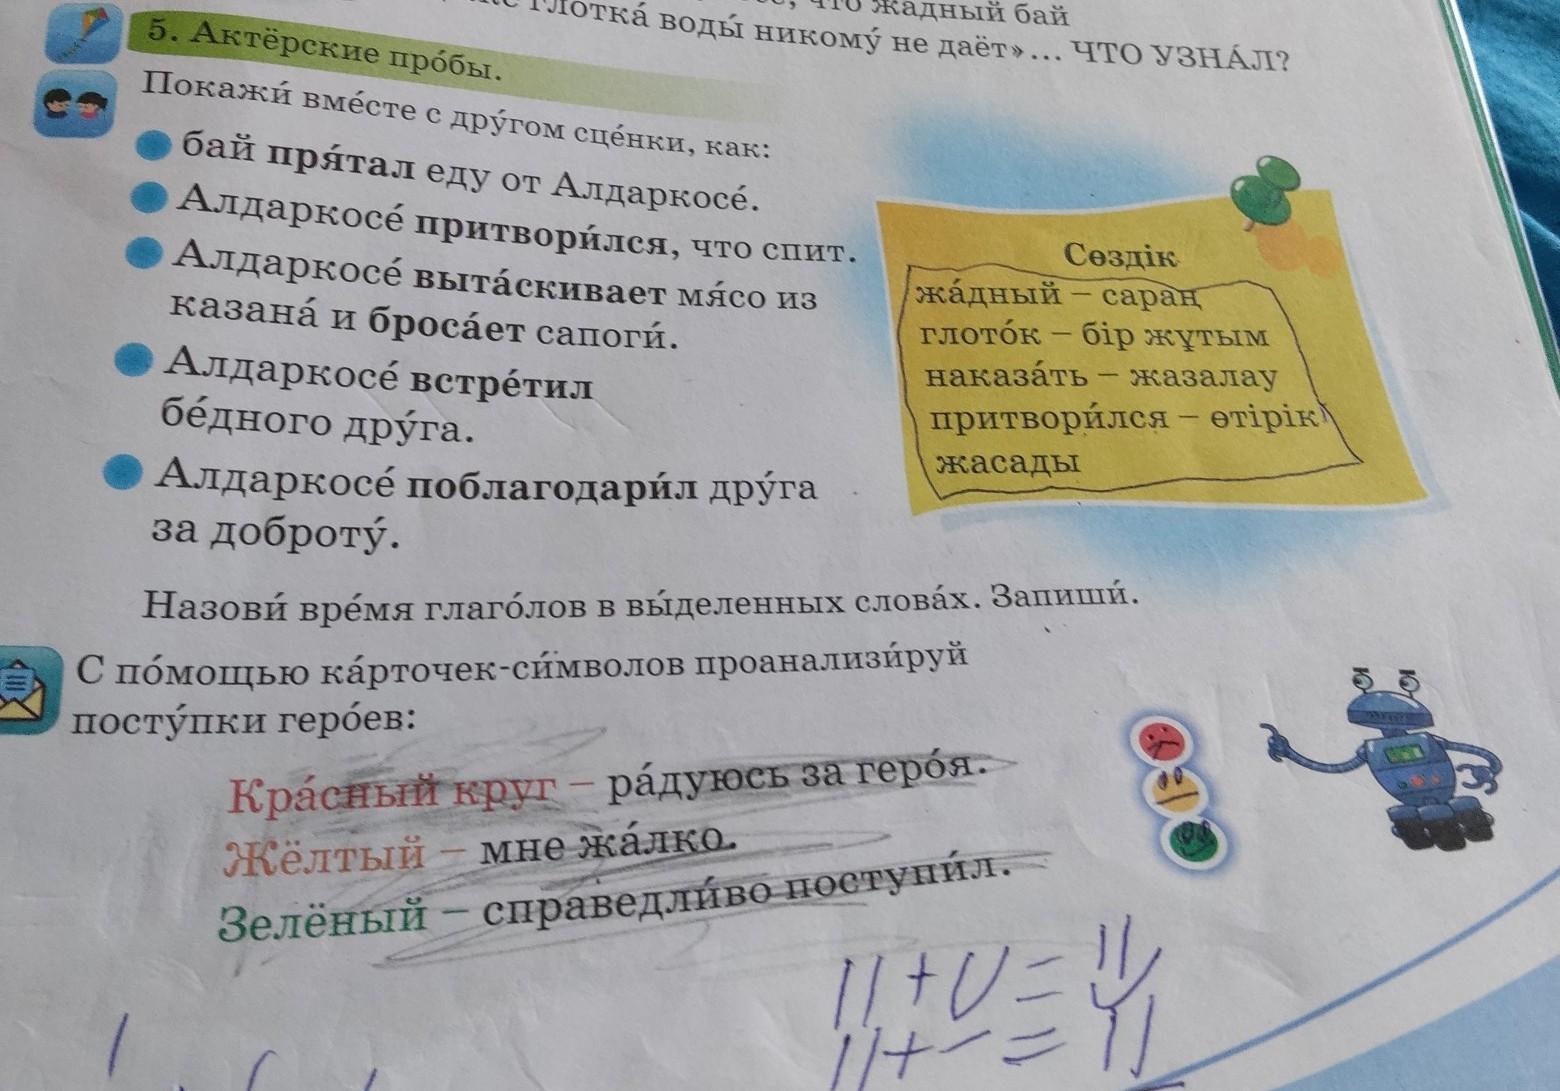 что жадный бай
глотка́ воды́ никому́ не даёт»... ЧТО УЗНА́Л?
5. Актёрские про́бы.
Покажи́ вме́сте с дру́гом сце́нки, как:
бай пря́тал еду от Алдаркосе́.
Алдаркосе́ притвори́лся, что спит.
Алдаркосе́ выта́скивает мя́со из
казана́ и броса́ет сапоги́.
Алдаркосе́ встре́тил
бе́дного дру́га.
Алдаркосе́ поблагодари́л дру́га
за доброту́.
Сөздік
жа́дный – сараң
глото́к – бір жұтым
наказа́ть – жазалау
притвори́лся – өтірік
жасады
Назови́ вре́мя глаго́лов в вы́деленных слова́х. Запиши́.
С по́мощью ка́рточек-си́мволов проанализи́руй
посту́пки геро́ев:
Кра́сный круг – ра́дуюсь за геро́я.
Жёлтый – мне жа́лко.
Зелёный – справедли́во поступи́л.